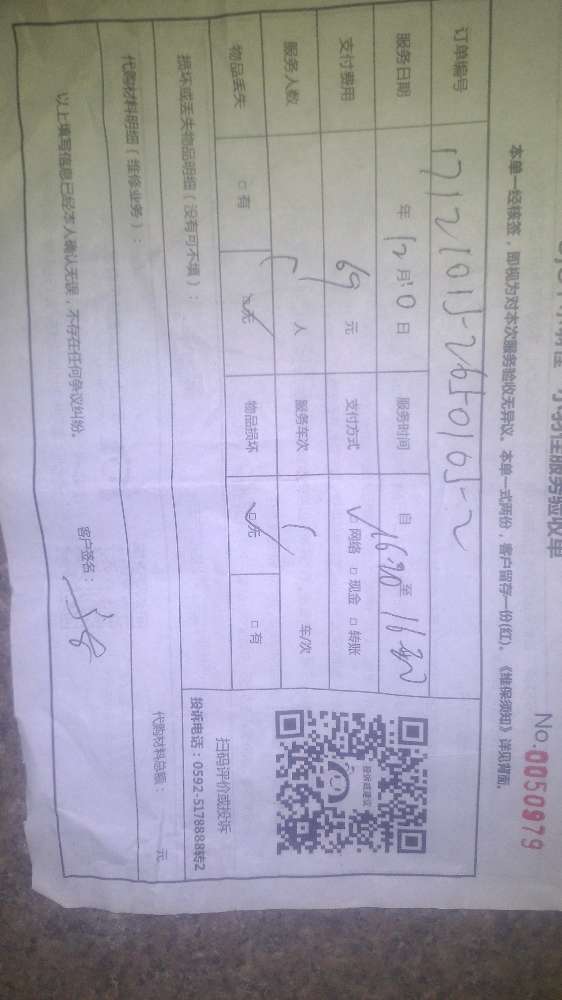 小羽佳服务验收单
No.0050979
本单一经核签,即视为对本次服务验收无异议。本单一式两份,客户留存一份(红)。《维保须知》详见背面。
订单编号
服务日期 年 12 月 10 日 服务时间 自 至
支付费用 69 元 支付方式 网络 □ 现金 □ 转账
服务人数 人 服务车次 车/次
物品丢失 □ 有 □ 无 物品损坏 □ 无 □ 有
损坏或丢失物品明细(没有可不填):
投诉或建议
扫码评价或投诉
投诉电话:0592-5178888转2
代购材料明细(维修业务): 代购材料总额: 元
以上填写信息已经本人确认无误,不存在任何争议纠纷。
客户签名: